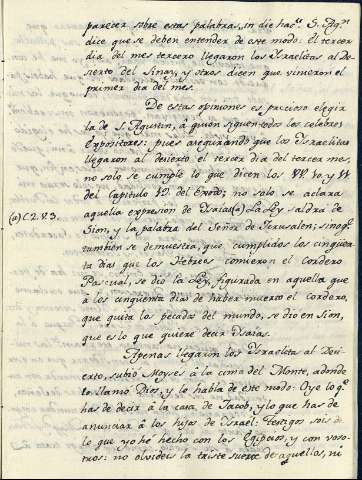 parecer sobre estas palabras, in die hac. S. Agn.
dice que se deben entender de este modo: El tercer
dia del mes tercero llegaron los Israelitas al De-
sierto del Sinay, y otros dicen que vinieron el
primer dia del mes.
De estas opiniones es precioso elegir
la de S. Agustin, à quien siguen todos los celebres
Expositores: pues asegurando que los Israelitas
llegaron al desierto el tercer dia del tercer mes,
no solo se cumple lo que dicen los VV. 10 y 11
del Capitulo 19 del Exodo; no solo se aclara
(a) C. 2. V. 3. aquella expresion de Isaias (a) La Ley saldra de
Sion, y la palabra del Señor de Jerusalen; sino q.
tambien se demuestra, que cumplidos los cinquen-
ta dias que los Hebreos comieron el Cordero
Pascual, se diò la Ley, figurada en aquella que
à los cinquenta dias de haber muerto el Cordero,
que quita los pecados del mundo, se dio en Sion,
que es lo que quiere decir Isaias.
Apenas llegaron los Israelitas al Desi-
erto, subiò Moyses à la cima del Monte, adonde
le llamò Dios, y le habla de este modo: Oye lo q.
has de decir à la casa de Jacob, y lo que has de
anunciar à los hijos de Israel: Testigos sois de
lo que yo hé hecho con los Egipcios, y con voso-
tros: no olvideis la triste suerte de aquellos, ni